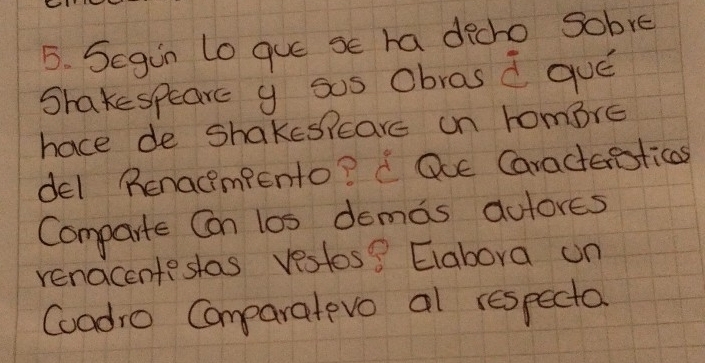 5. Según lo que se ha dicho sobre
Shakespeare y sus Obras ¿ qué
hace de Shakespeare un hombre
del Renacimiento? ¿ Que Caracteristicas
Comparte Con los demás autores
renacentistas vistos? Elabora un
Cuadro Comparativo al respecta